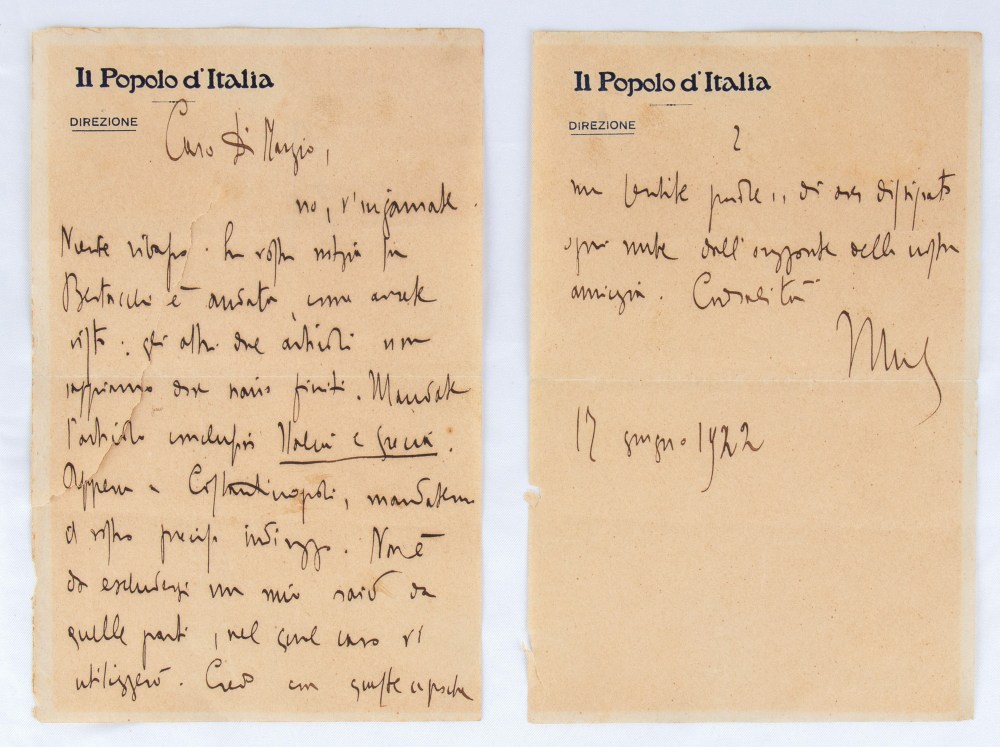 Il Popolo d'Italia
DIREZIONE
Caro Di Marzio,
no, v'ingannate.
Niente ribasso. La vostra notizia su
Bertacchi è andata, come avrete
visto. gli altri due articoli non
sappiamo dove siano finiti. Mandate
l'articolo conclusivo Italia e Grecia.
Appena a Costantinopoli, mandatemi
il vostro preciso indirizzo. Non è
da escludersi un mio raid da
quelle parti, nel qual caso vi
utilizzerò. Credo con queste
Il Popolo d'Italia
DIREZIONE
2
di aver dissipato
ogni nube dall'orizzonte della nostra
amicizia. Cordialità
17 giugno 1922